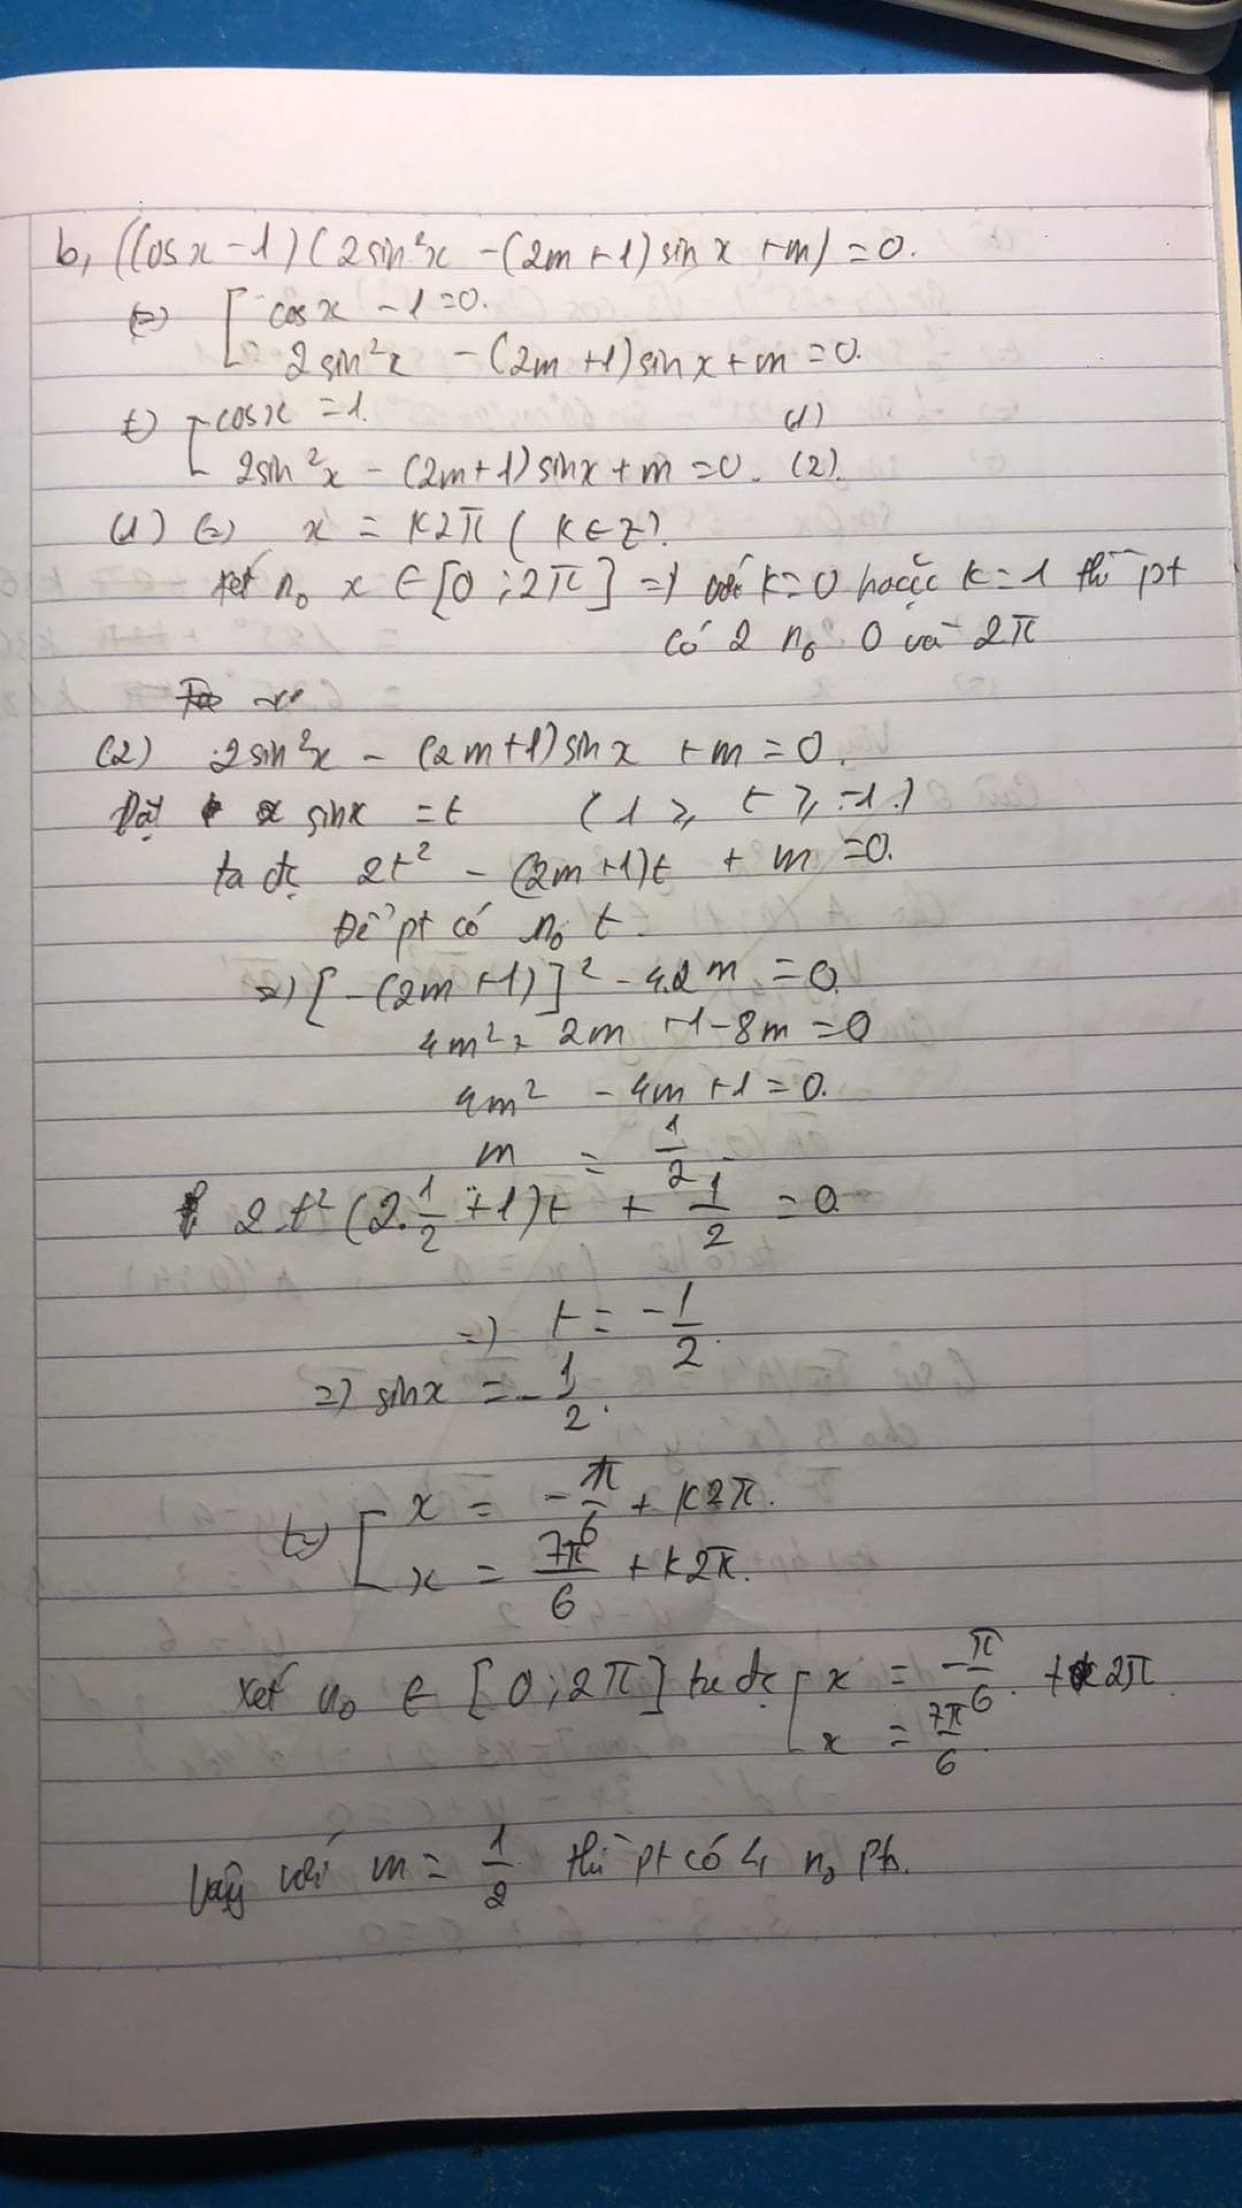 b, (Cosx - 1)(2sin²x - (2m+1)sinx + m) = 0.
(=) [ cosx - 1 = 0.
2sin²x - (2m+1)sinx + m = 0.
(=) [ cosx = 1. (1)
2sin²x - (2m+1)sinx + m = 0. (2).
(1) (=) x = k2π (k∈Z).
xét n₀ x ∈ [0; 2π] =) với k=0 hoặc k=1 thì pt
có 2 n₀ 0 và 2π
(2) 2sin²x - (2m+1)sinx + m = 0.
Đặt sinx = t (1 ⩾ t ⩾ -1.)
ta đc 2t² - (2m+1)t + m = 0.
Để pt có n₀ t.
=) [-(2m+1)]² - 4.2m = 0.
4m² + 2m + 1 - 8m = 0
4m² - 4m + 1 = 0.
m = 1/2
2.t² (2.1/2 + 1)t + 1/2 = 0
=) t = -1/2.
=) sinx = -1/2.
(=) [ x = -π/6 + k2π.
x = 7π/6 + k2π.
xét n₀ ∈ [0; 2π] ta đc [ x = -π/6 + 2π
x = 7π/6.
Vậy với m = 1/2 thì pt có 4 n₀ pb.